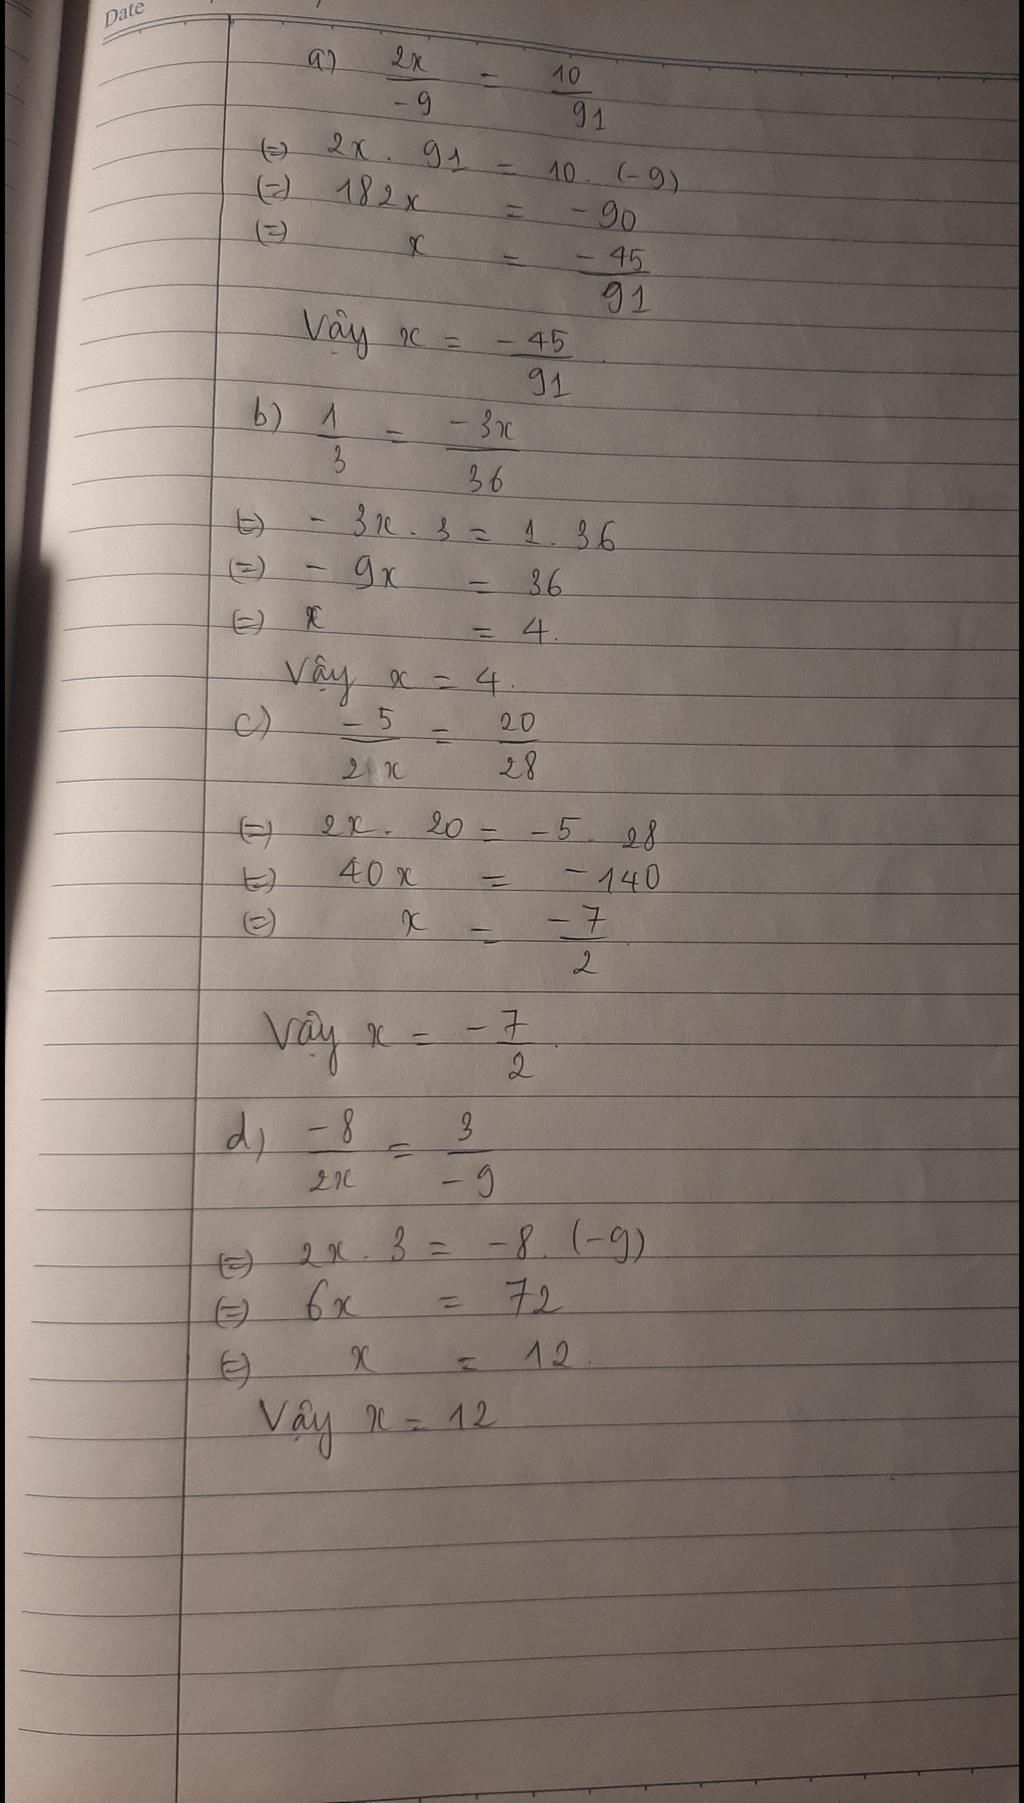 Date
a) 2x/-9 = 10/91
(=) 2x . 91 = 10 . (-9)
(=) 182x = -90
(=) x = -45/91
Vậy x = -45/91
b) 1/3 = -3x/36
(=) - 3x . 3 = 1 . 36
(=) - 9x = 36
(=) x = 4.
Vậy x = 4.
c) -5/2x = 20/28
(=) 2x . 20 = -5 . 28
(=) 40x = -140
(=) x = -7/2
Vậy x = -7/2.
d) -8/2x = 3/-9
(=) 2x . 3 = -8 . (-9)
(=) 6x = 72
(=) x = 12.
Vậy x = 12